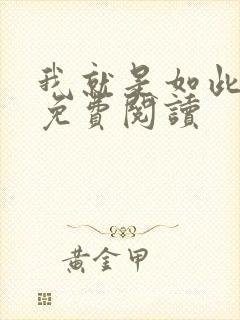 我就是如此
免費閱讀
黃金甲